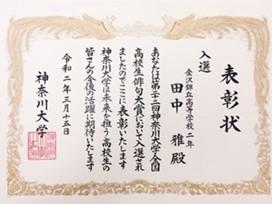 表彰状
入選
金沢錦丘高等学校二年
田中 雅 殿
あなたは第二十二回神奈川大学全国
高校生俳句大賞において入選され
ましたのでここに表彰いたします
神奈川大学は未来を担う高校生の
皆さんの今後の活躍に期待いたします
令和二年三月十五日
神奈川大学